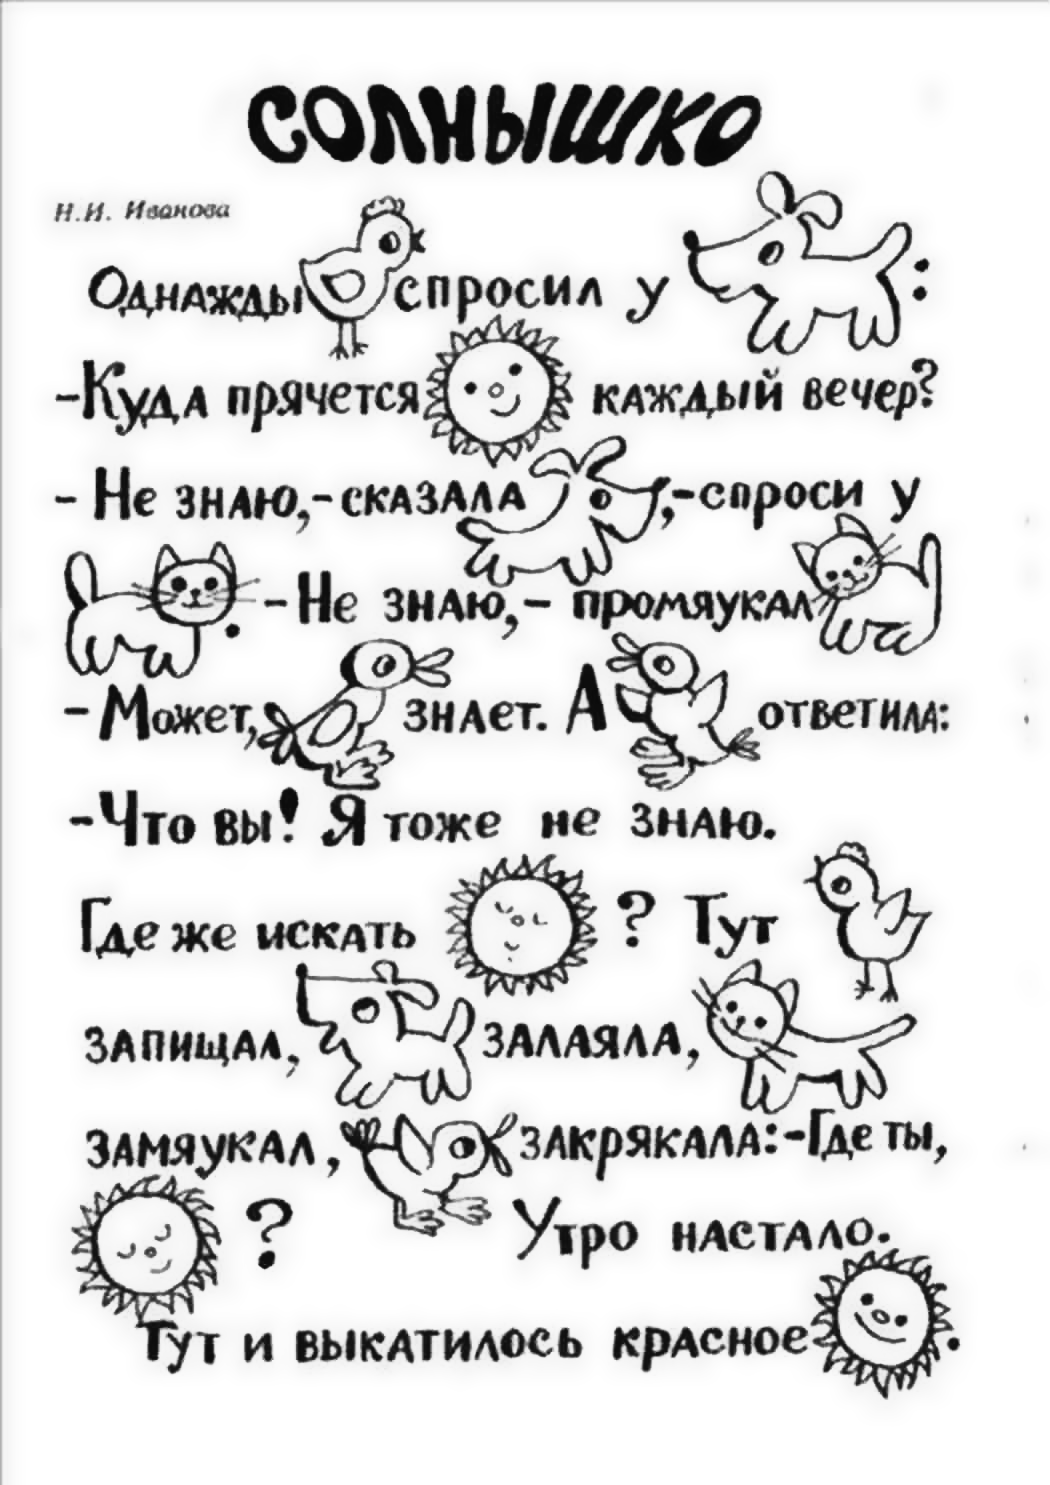 СОЛНЫШКО
Н.И. Иванова
Однажды спросил у :
-Куда прячется каждый вечер?
- Не знаю,- сказала ,-спроси у
. -Не знаю,- промяукал
-Может, знает. А ответила:
-Что вы! Я тоже не знаю.
Где же искать ? Тут
запищал, залаяла,
замяукал, закрякала:-Где ты,
? Утро настало.
Тут и выкатилось красное .